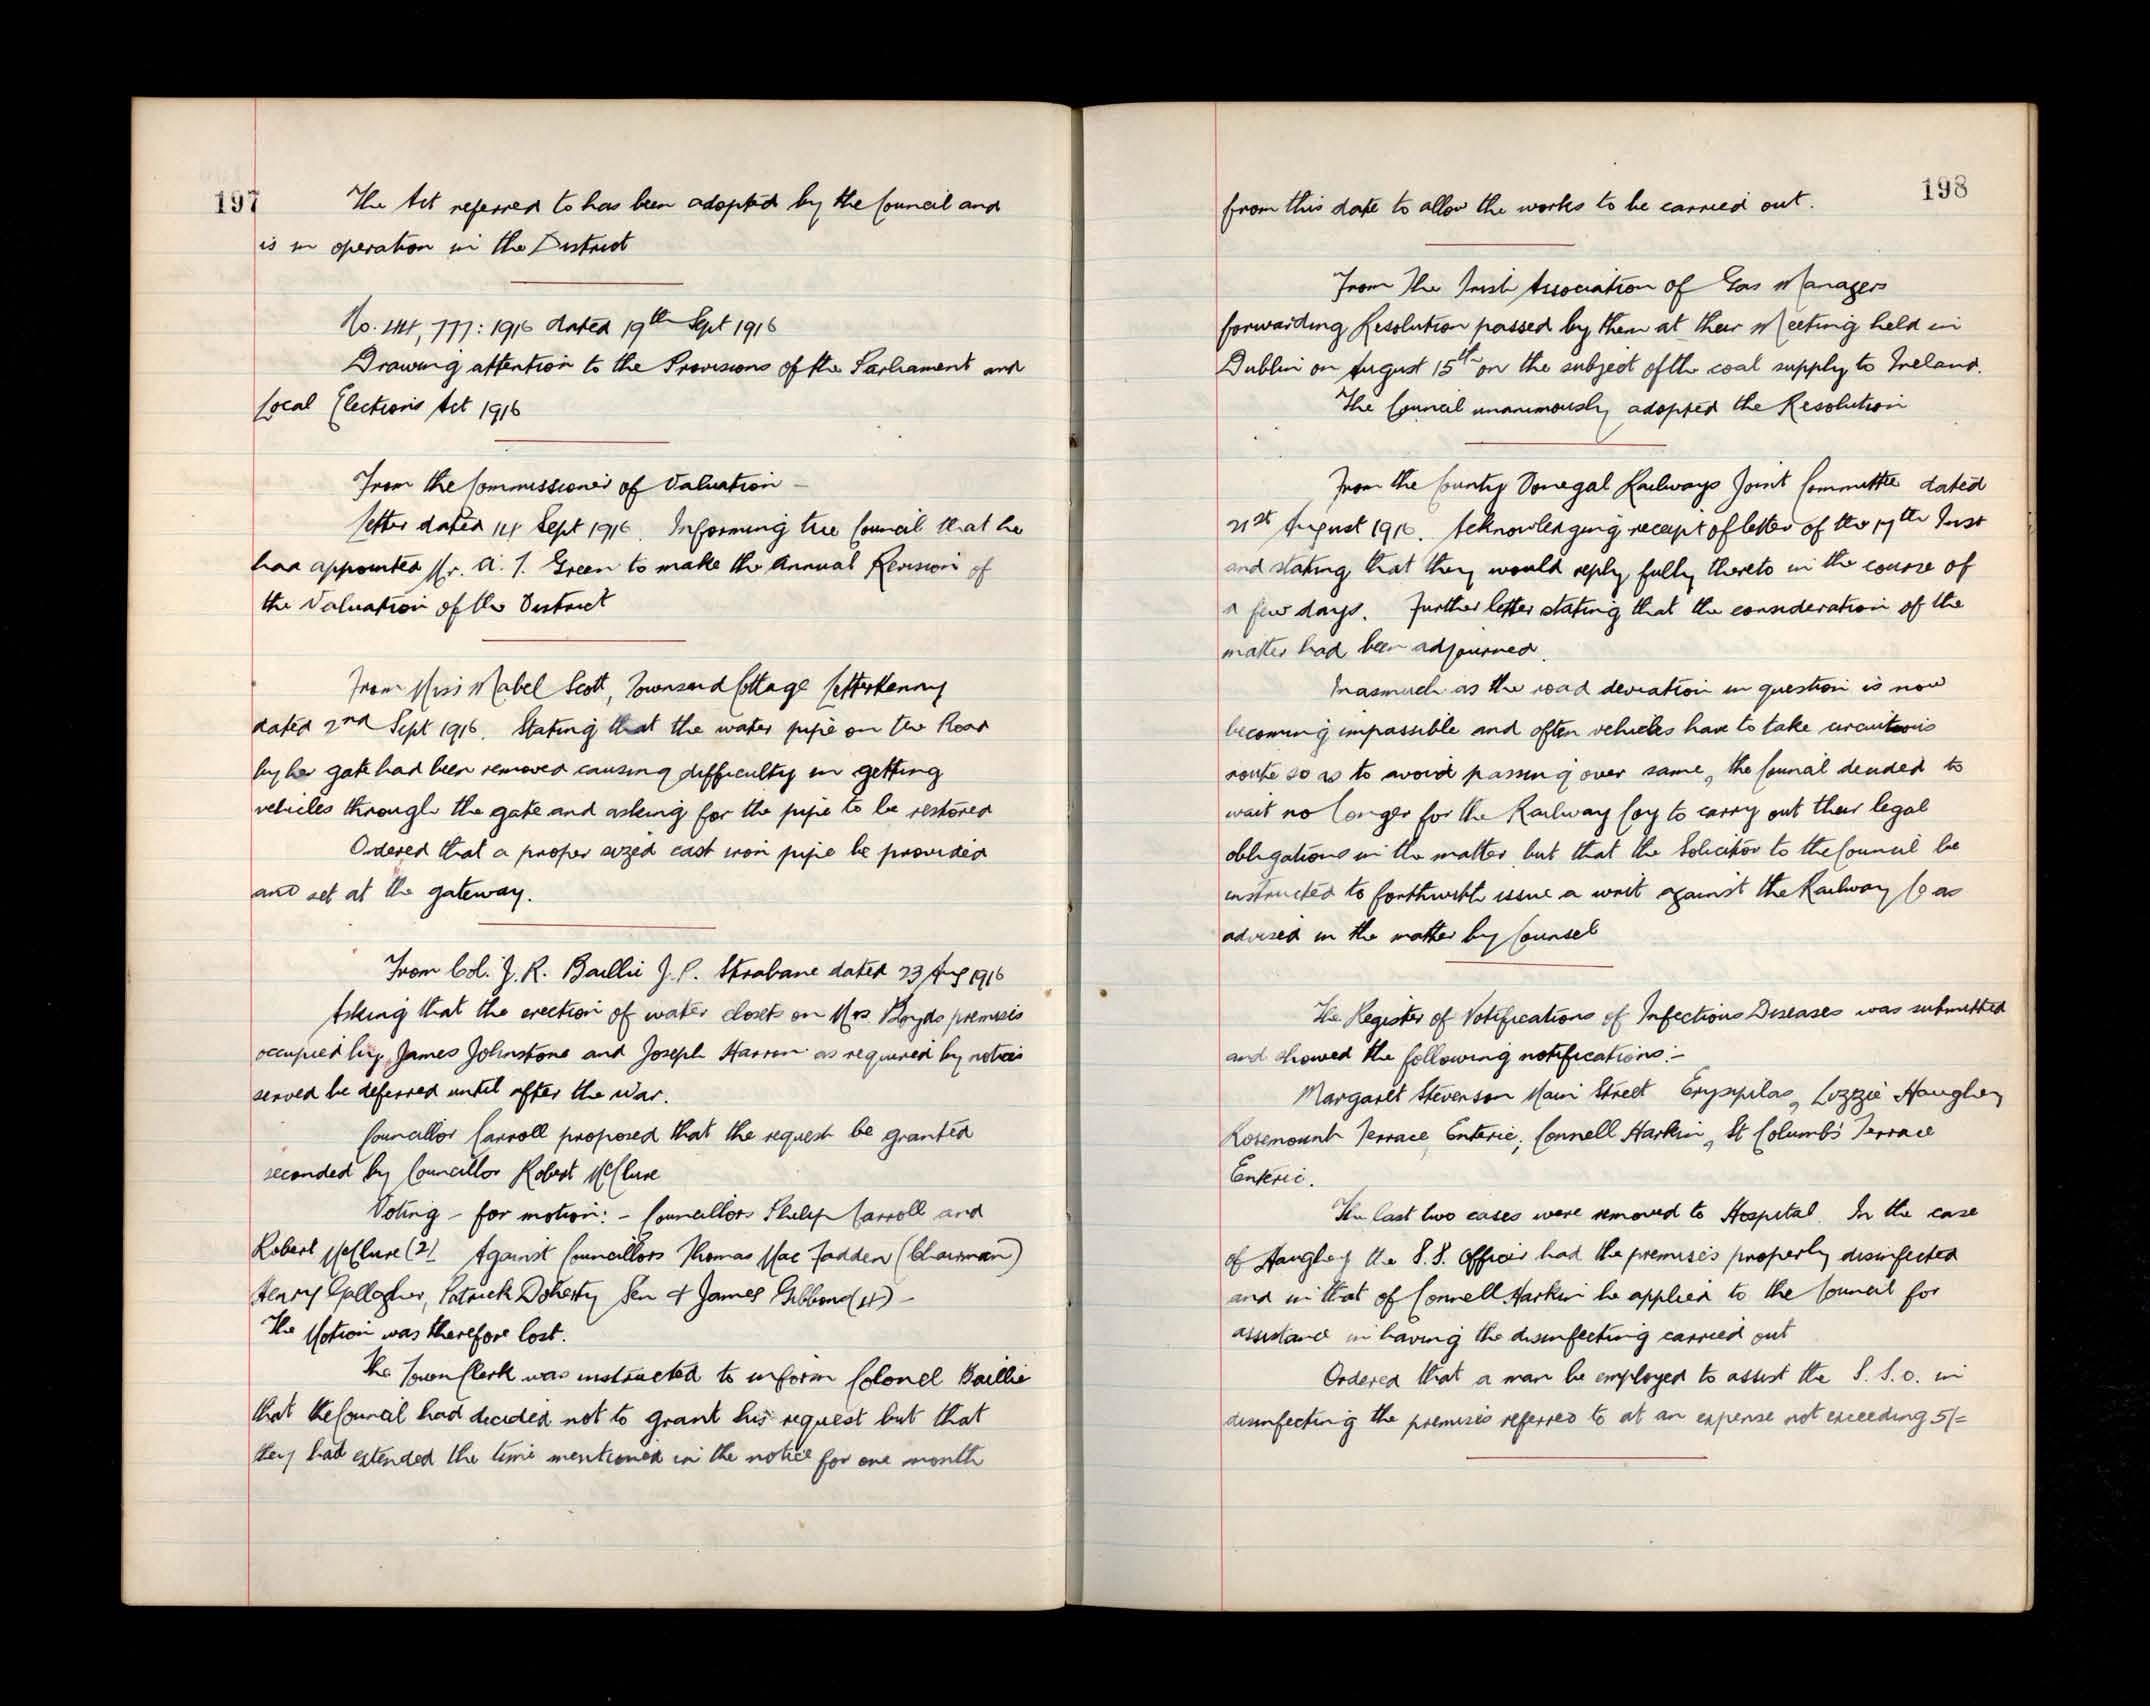 197
The Act referred to has been adopted by the Council and
is in operation in the District
No. 44,777: 1916 dated 19th Sept 1916
Drawing attention to the Provisions of the Parliament and
Local Elections Act 1916
From the Commissioner of Valuation –
Letter dated 14 Sept 1916. Informing the Council that he
had appointed Mr. A. J. Green to make the Annual Revision of
the Valuation of the District
From Miss Mabel Scott, Townsend Cottage Letterkenny
dated 2nd Sept 1916. Stating that the water pipe on the Road
by her gate had been removed causing difficulty in getting
vehicles through the gate and asking for the pipe to be restored
Ordered that a proper sized cast iron pipe be provided
and set at the gateway.
From Col. J. R. Baillie J.P. Strabane dated 23 Aug 1916
Asking that the erection of water closets on Mrs. Boyds premises
occupied by James Johnstone and Joseph Harron as required by notices
served be deferred until after the War.
Councillor Carroll proposed that the request be granted
seconded by Councillor Robert McClure
Voting – for motion: – Councillors Philip Carroll and
Robert McClure (2). Against Councillors Thomas Mac Fadden (Chairman)
Henry Gallagher, Patrick Doherty Sen & James Gibbons (4) –
The Motion was therefore lost.
The Town Clerk was instructed to inform Colonel Baillie
that the Council had decided not to grant his request but that
they had extended the time mentioned in the notice for one month
198
from this date to allow the works to be carried out.
From The Irish Association of Gas Managers
forwarding Resolution passed by them at their Meeting held in
Dublin on August 15th on the subject of the coal supply to Ireland.
The Council unanimously adopted the Resolution
From the County Donegal Railways Joint Committee dated
21st August 1916. Acknowledging receipt of letter of the 17th Inst
and stating that they would reply fully thereto in the course of
a few days. Further letter stating that the consideration of the
matter had been adjourned.
Inasmuch as the road deviation in question is now
becoming impassible and often vehicles have to take circuitous
route so as to avoid passing over same, the Council decided to
wait no longer for the Railway Coy to carry out their legal
obligations in the matter but that the Solicitor to the Council be
instructed to forthwith issue a writ against the Railway Co as
advised in the matter by Counsel
The Register of Notifications of Infectious Diseases was submitted
and showed the following notifications:–
Margaret Stevenson Main Street Erysipilas, Lizzie Haughey
Rosemount Terrace, Enteric; Connell Harkin, St Columb's Terrace
Enteric.
The last two cases were removed to Hospital. In the case
of Haughey the S.S. Officer had the premises properly disinfected
and in that of Connell Harkin he applied to the Council for
assistance in having the disinfecting carried out
Ordered that a man be employed to assist the S.S.O. in
disinfecting the premises referred to at an expense not exceeding 5/=